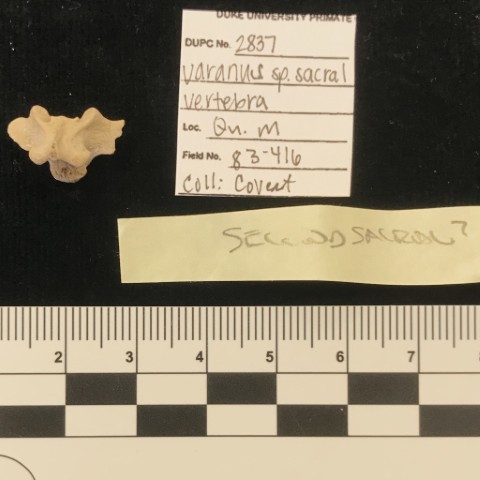 DUKE UNIVERSITY PRIMATE
DUPC No. 2837
Varanus sp. sacral
vertebra
Loc. Qu. M
Field No. 83-416
Coll: Covert
SECOND SACRAL?
2 3 4 5 6 7